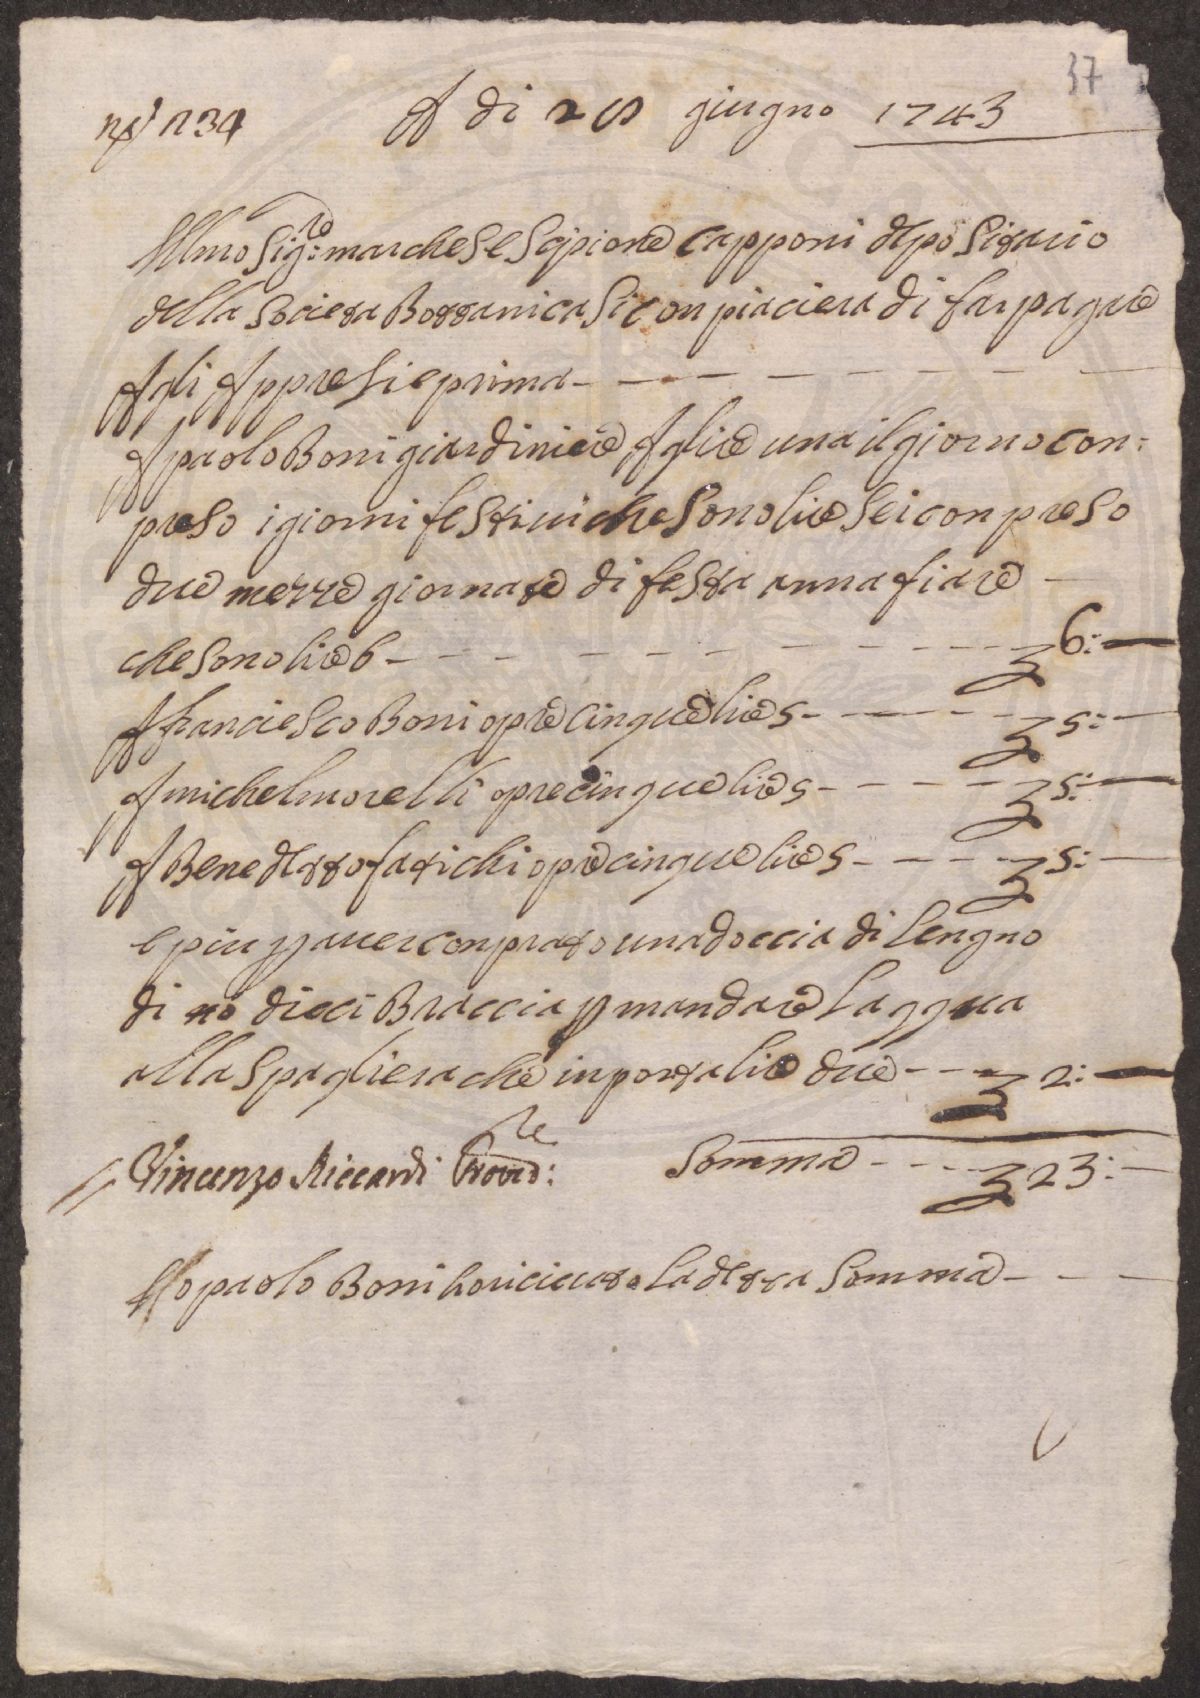 37
No 134 A di 28 giugno 1743
Illmo Sig:re marchese Scipione Capponi deposi tario
della Societa Bottanica Si con piaciera di far pagare
A gli Appresi e prima
A paolo Boni giardiniere A lire una il giorno con:
preso i giorni festiui che sono lire sei con preso
due mezze giornate di festa anna fiare
che sono lire 6 6:
A franciesco Boni opre cinque lire 5 5:
A michel morelli opre cinque lire 5 5:
A Benedetto fatichi opre cinque lire 5 5:
e piu p auer conprato una doccia di lengno
di no dieci Braccia p mandare laqqua
alla Spagliera che inporta lire due 2:
Vincenzo Riccardi Provd:re Somma 23:
Io paolo Boni ho riceuto la detta Somma